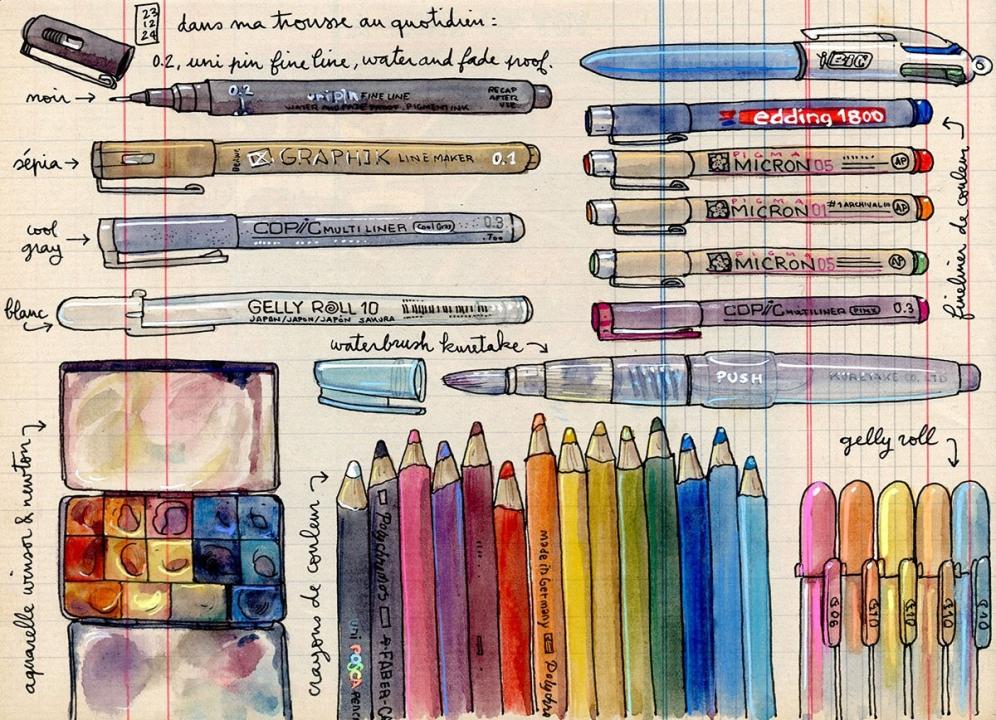 23
12
24
dans ma trousse au quotidien :
0.2, uni pin fine line, water and fade proof.
noir
0.2 uni pin FINE LINE
WATER AND FADE PROOF, PIGMENT INK
RECAP
AFTER
USE
sépia
GRAPHIK LINE MAKER 0.1
cool
gray
COPIC MULTI LINER Cool Gray 0.3
blanc
GELLY ROLL 10
JAPAN/JAPON/JAPÓN SAKURA
BIC
edding 1800
PIGMA
MICRON 05 AP
PIGMA
MICRON 01 #1 ARCHIVAL AP
PIGMA
MICRON 05 AP
COPIC MULTILINER PINK 0.3
fineliner de couleur
waterbrush kuretake
PUSH KURETAKE CO. LTD
aquarelle winsor & newton
crayons de couleur
uni POSCA PENC
Polychromos FABER-CA
made in Germany Polychro
gelly roll
G06
G10
G10
G10
G10